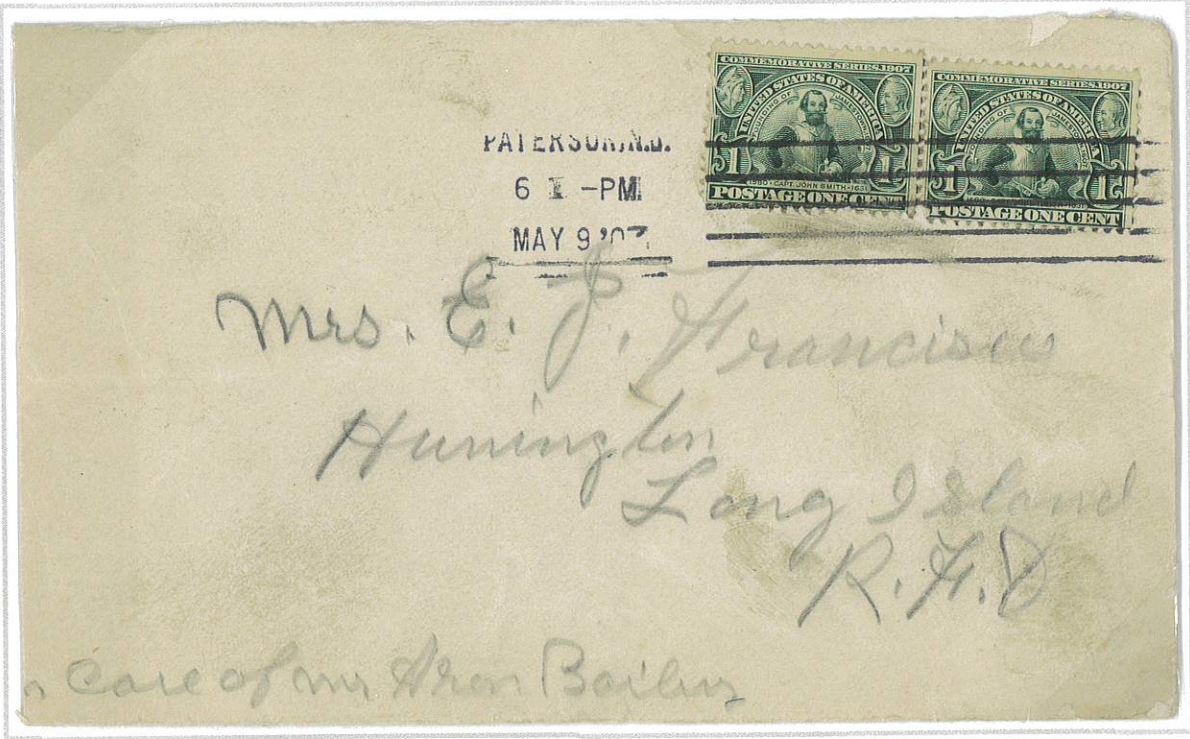 COMMEMORATIVE SERIES 1907
UNITED STATES OF AMERICA
FOUNDING OF JAMESTOWN 1607
1 1
1580 · CAPT. JOHN SMITH · 1631
POSTAGE ONE CENT
COMMEMORATIVE SERIES 1907
UNITED STATES OF AMERICA
FOUNDING OF JAMESTOWN
1 1
POSTAGE ONE CENT
PATERSON, N.J.
6 -PM
MAY 9 '07
Mrs. E. J. Francisco
Hunington
Long Island
R.F.D
Care of Mr Bailey